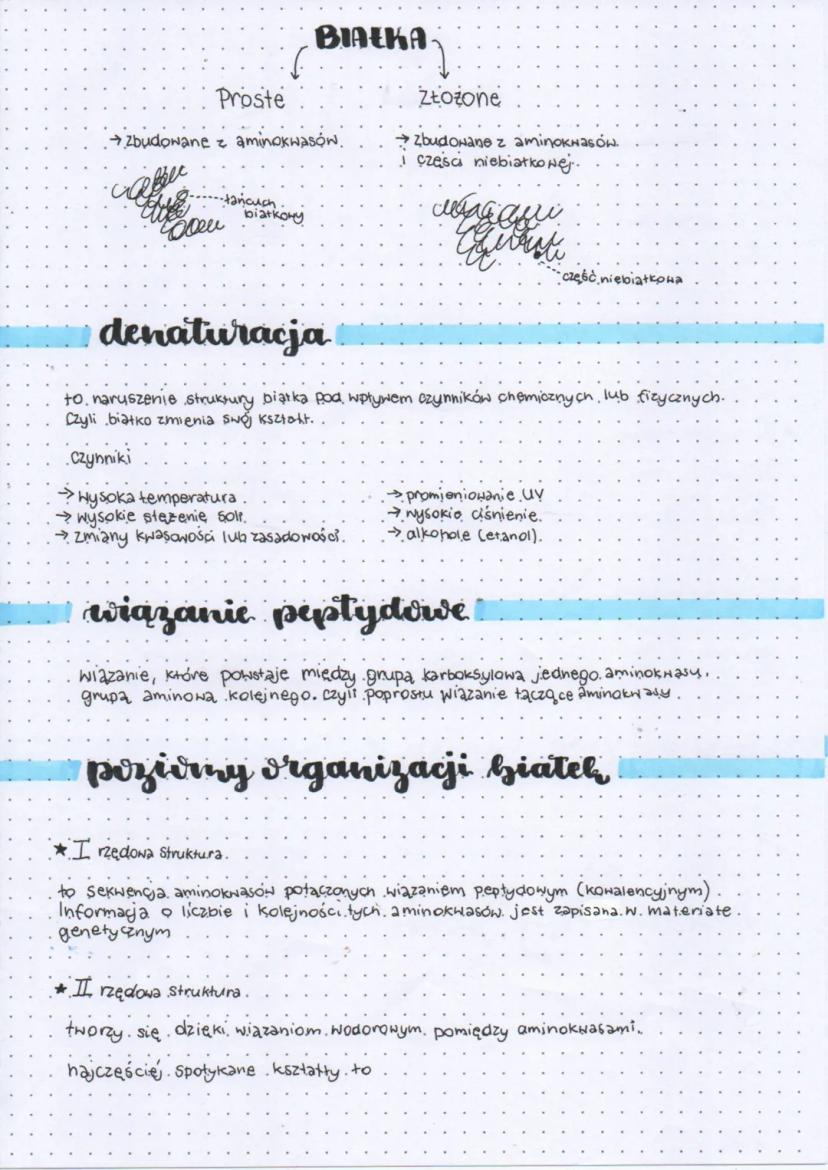 BIAŁKA
Proste
Złożone
→ zbudowane z aminokwasów.
→ zbudowane z aminokwasów
i części niebiałkowej.
łańcuch
białkowy
część niebiałkowa
denaturacja
to naruszenie struktury białka pod wpływem czynników chemicznych lub fizycznych.
Czyli białko zmienia swój kształt.
czynniki
→ wysoka temperatura
→ wysokie stężenie soli
→ zmiany kwasowości lub zasadowości.
→ promieniowanie UV
→ wysokie ciśnienie.
→ alkohole (etanol).
wiązanie peptydowe
wiązanie, które powstaje między grupą karboksylową jednego aminokwasu,
grupą aminową kolejnego. czyli poprostu wiązanie łączące aminokwasy
poziomy organizacji białek
★ I rzędowa struktura.
to sekwencja aminokwasów połączonych wiązaniem peptydowym (kowalencyjnym)
Informacja o liczbie i kolejności tych aminokwasów jest zapisana w materiale
genetycznym
★ II rzędowa struktura.
tworzy się dzięki wiązaniom wodorowym pomiędzy aminokwasami.
najczęściej spotykane kształty to